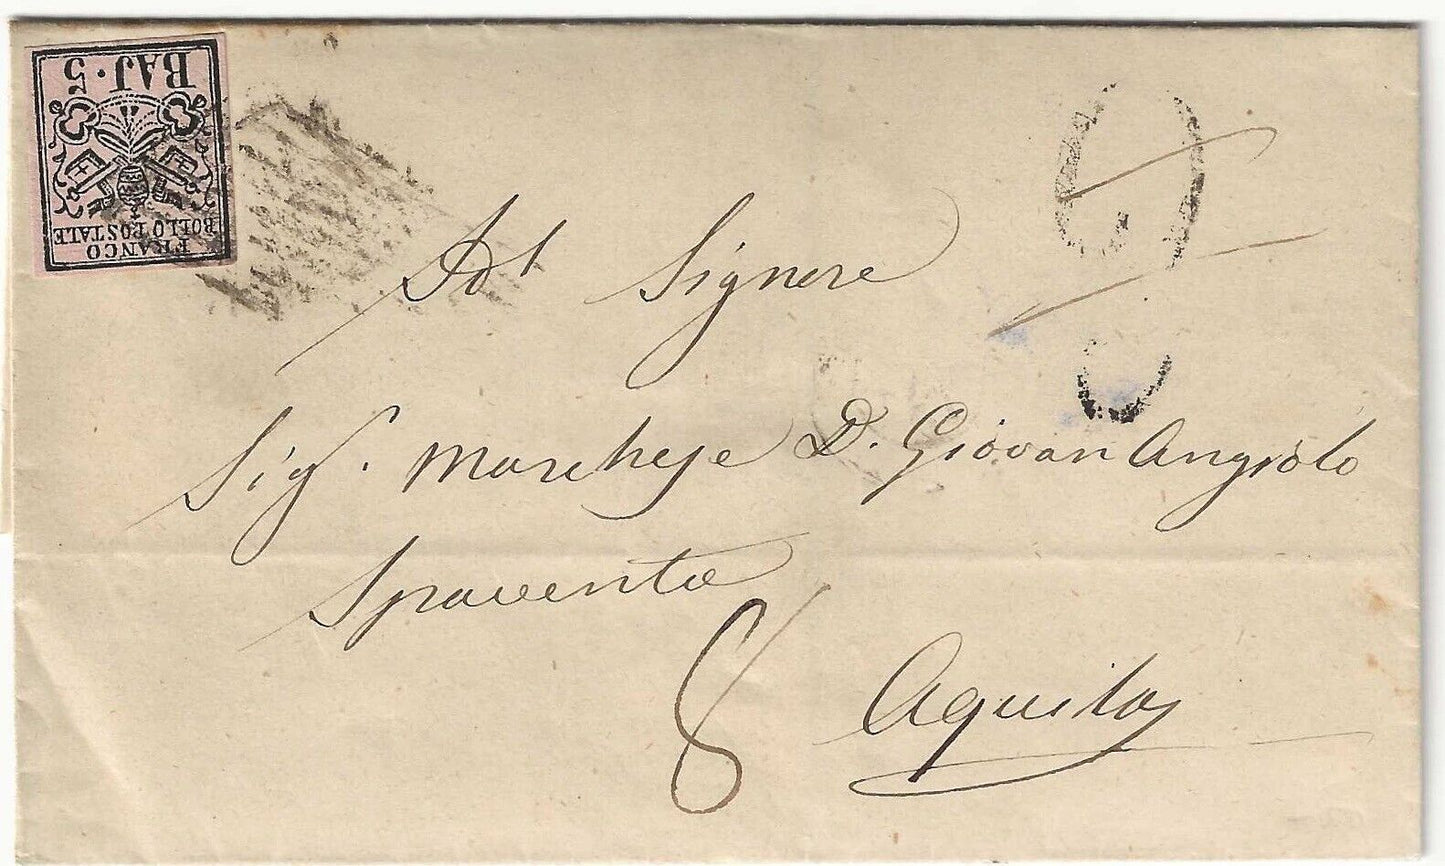 BAJ. 5
FRANCO
BOLLO POSTALE
Al Signore
Sigr. Marchese D. Giovan Angiolo
Spaventa
8
Aquila